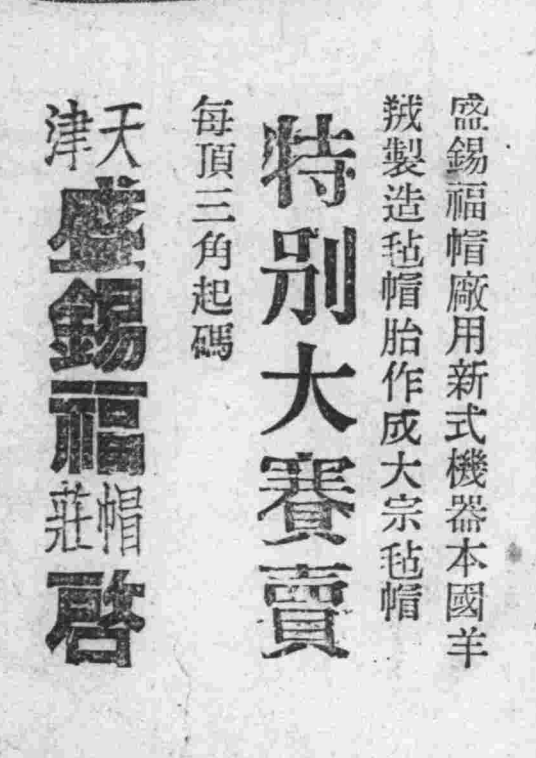 盛錫福帽廠用新式機器本國羊
羢製造毡帽胎作成大宗毡帽
特別大賽賣
每頂三角起碼
天津盛錫福帽莊啓